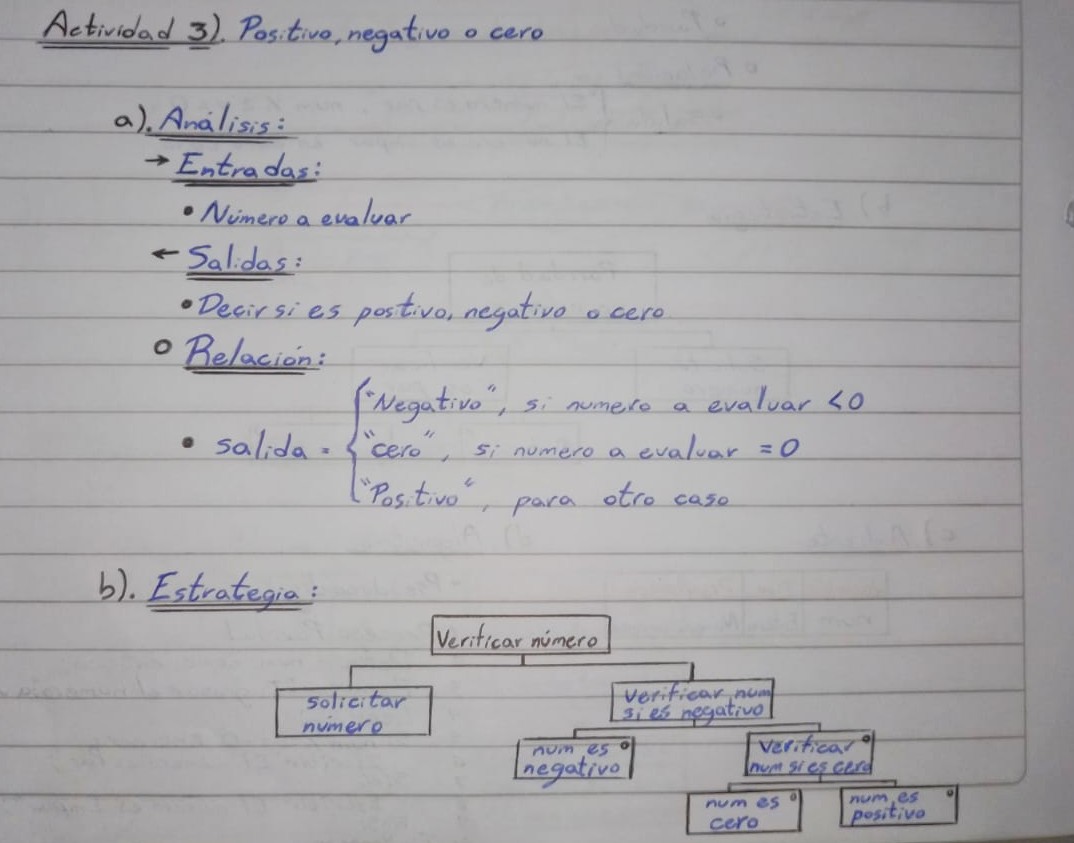 Actividad 3). Positivo, negativo o cero
a). Análisis:
→ Entradas:
• Número a evaluar
← Salidas:
• Decir si es postivo, negativo o cero
o Relación:
"Negativo", si numero a evaluar <0
• salida = "cero", si numero a evaluar =0
"Positivo", para otro caso
b). Estrategia:
Verificar número
solicitar
número
Verificar num
si es negativo
num es
negativo
Verificar
num si es cero
num es
cero
num es
positivo